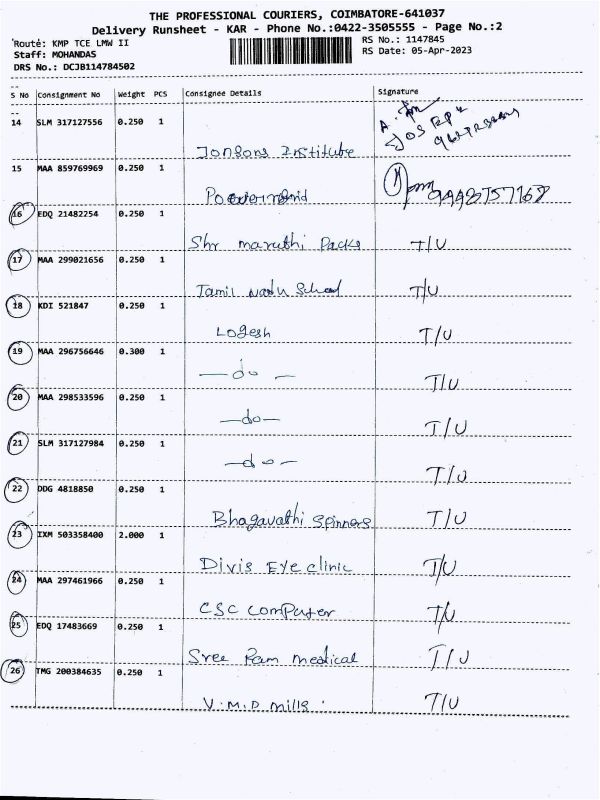 THE PROFESSIONAL COURIERS, COIMBATORE-641037
Delivery Runsheet - KAR - Phone No.:0422-3505555 - Page No.:2
Route: KMP TCE LMW II
RS No.: 1147845
Staff: MOHANDAS
RS Date: 05-Apr-2023
DRS No.: DCJB114784502
S No Consignment No Weight PCS Consignee Details Signature
14 SLM 317127556 0.250 1
Jonsons Institute
15 MAA 859769969 0.250 1
16 EDQ 21482254 0.250 1
Shr maruthi Packs T/U
17 MAA 299021656 0.250 1
Tamil Nadu School T/U
18 KDI 521847 0.250 1
Logesh T/U
19 MAA 296756646 0.300 1
—do— T/U
20 MAA 298533596 0.250 1
—do— T/U
21 SLM 317127984 0.250 1
—do— T/U
22 DDG 4818850 0.250 1
Bhagavathi Spinners T/U
23 IXM 503358400 2.000 1
Divis Eye clinic T/U
24 MAA 297461966 0.250 1
CSC Computer T/U
25 EDQ 17483669 0.250 1
Sree Ram medical T/U
26 TMG 200384635 0.250 1
V.M.D mills T/U